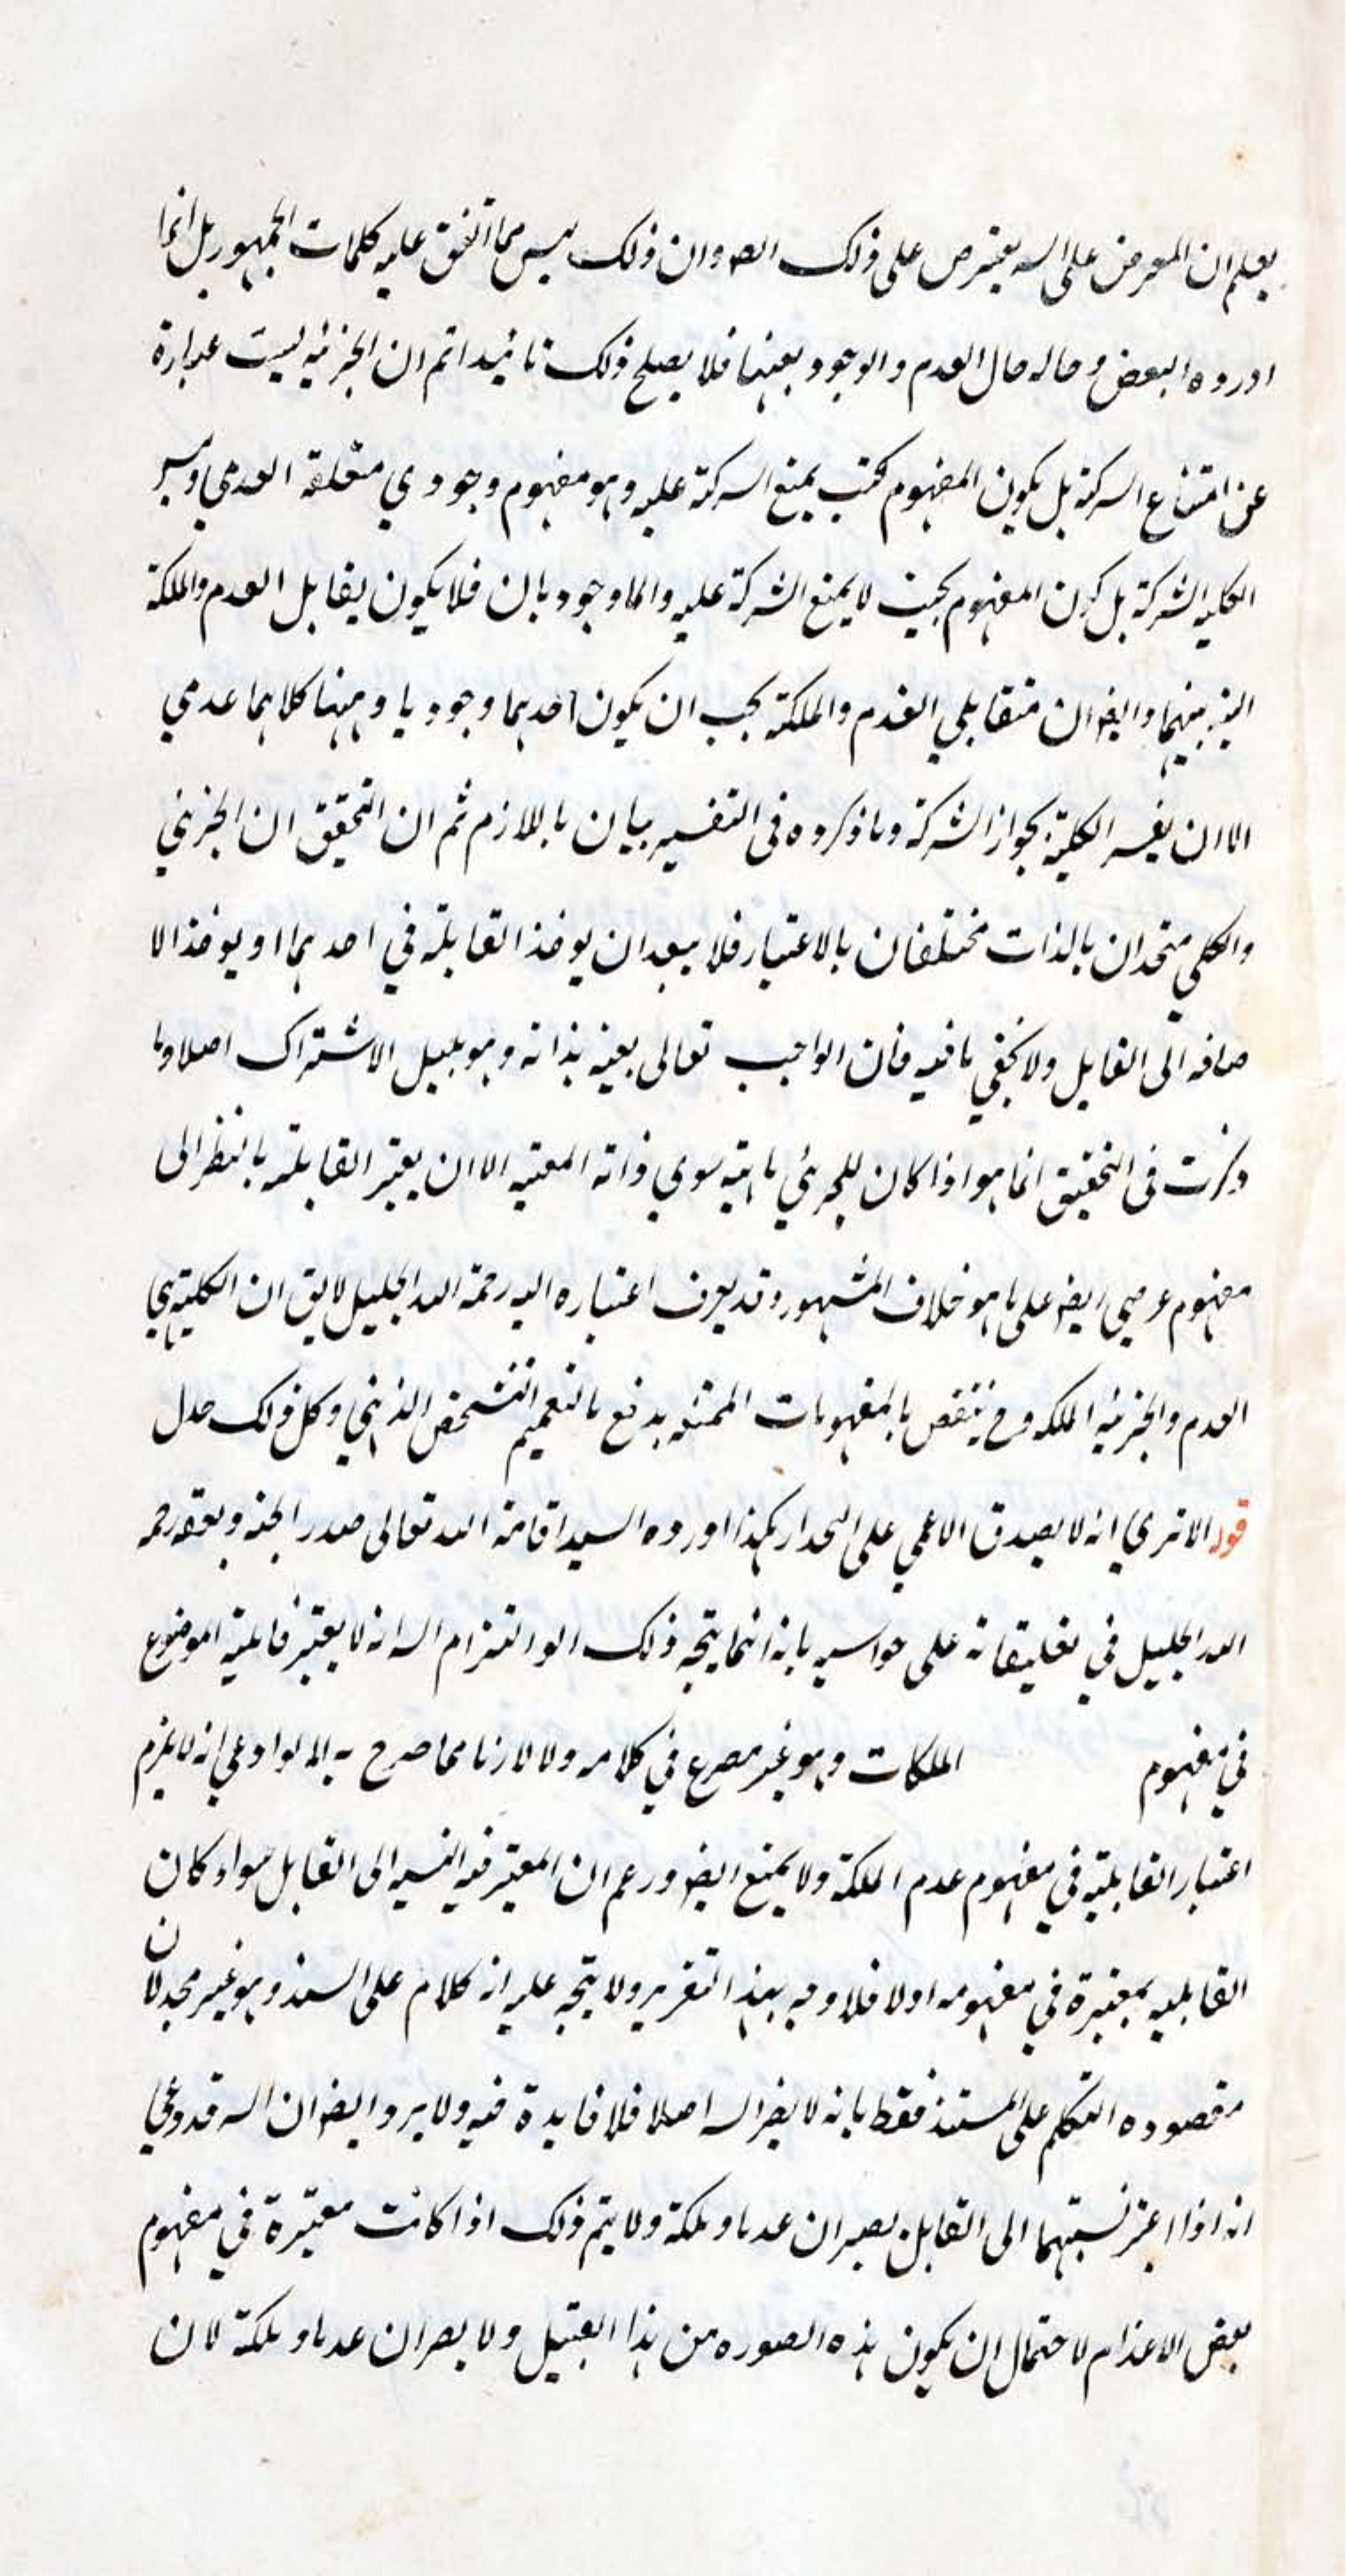 يعلم ان المعرض على السه يعترض على ذلك الصه وان ذلك ليس مما اتفق عليه كلمات الجمهور بل انما
اورده البعض وحاله حال العدم والوجود بعينها فلا يصلح ذلك تائيدا ثم ان الجزئيه ليست عبارة
عن امتناع السركة بل يكون المفهوم بحيث يمنع السركة عليه وهو مفهوم وجودي متعلقه العدمي وليس
الكليه الشركة بل كون المفهوم بحيث لا يمنع الشركة عليه والما وجوديان فلا يكون يقابل العدم والملكة
بينهما وايضا ان متقابلي العدم والملكة يجب ان يكون احديهما وجوديا وههنا كلاهما عدمي
الا ان يفسر الكلية بجواز الشركة وما ذكروه في التفسير بيان باللازم ثم ان التحقيق ان الجزئي
والكلي متحدان بالذات مختلفان بالاعتبار فلا يبعد ان يوخذ القابلة في احديهما او يوخذ الا
ضافه الى القابل ولا يخفي ما فيه فان الواجب تعالى بعينه بذاته وهو بلبيل الاشتراك اصلا وما
ذكرت في التحقيق انما هو اذا كان للجزئي ماهية سوي ذاته المعتبه الا ان يعتبر القابلته بالنظر الى
مفهوم عرضي ايضا على ما هو خلاف المشهور وقد يعرف اعتباره اليه رحمة الله الجليل لا يق ان الكلية هي
العدم والجزئيه الملكه وح ينتقض بالمفهومات الممتنعه يدفع بالتعميم التشخص الذهني وكل ذلك جدل
قوله الا تري انه لا يصدق الاعمي على الجدار هكذا اورده السيد اقامة الله تعالى صدر الجنه وبعقه رحمه
الله الجليل في تعليقاته على حواسيه بانه انما يتجه ذلك الو التزام السه انه لا يعتبر قابلية الموضوع
في مفهوم الملكات وهو غير مصرع في كلامه ولا لازما مما صرح به اله لو ادعي انه لا يلزم
اعتبار القابلية في مفهوم عدم الملكة ولا يمنع ايضا ورعم ان المعتبر فيه النسبه الى القابل سواء كان
القابليه بمعتبرة في مفهومه اولا فلا وجه بهذا التقرير ولا يتجه عليه انه كلام على السند وهو غير مجد لان
مقصوده التكلم على المستند فقط بانه لا يضر السه اصلا فلا فايدة فيه ولا يرد ايضا ان السه قد ادعي
انه اذا اعتبر نسبتهما الى القابل يصيران عدما وملكة ولا يتم ذلك اذا كانت معتبرة في مفهوم
بعض الاعدام لاحتمال ان يكون هذه الصوره من هذا القبيل ولا يصران عدما وملكة لان